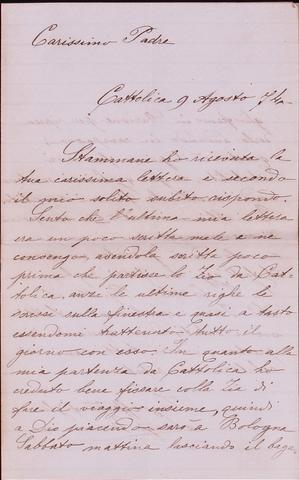 Carissimo Padre
Cattolica 9 Agosto 74
Stammane ho ricevuta la
tua carissima lettera e secondo
il mio solito subito rispondo.
Sento che l'ultima mia lettera
era un poco scritta male e ne
convengo, avendola scritta poco
prima che partisse lo Zio da Cat
tolica, anzi le ultime righe le
scrissi sulla finestra e quasi a tasto
essendomi trattenuto tutto il
giorno con esso. In quanto alla
mia partenza da Cattolica ho
creduto bene fissare colla Zia di
fare il viaggio insieme, quindi
a Dio piacendo sarò a Bologna
Sabbato mattina lasciando il baga